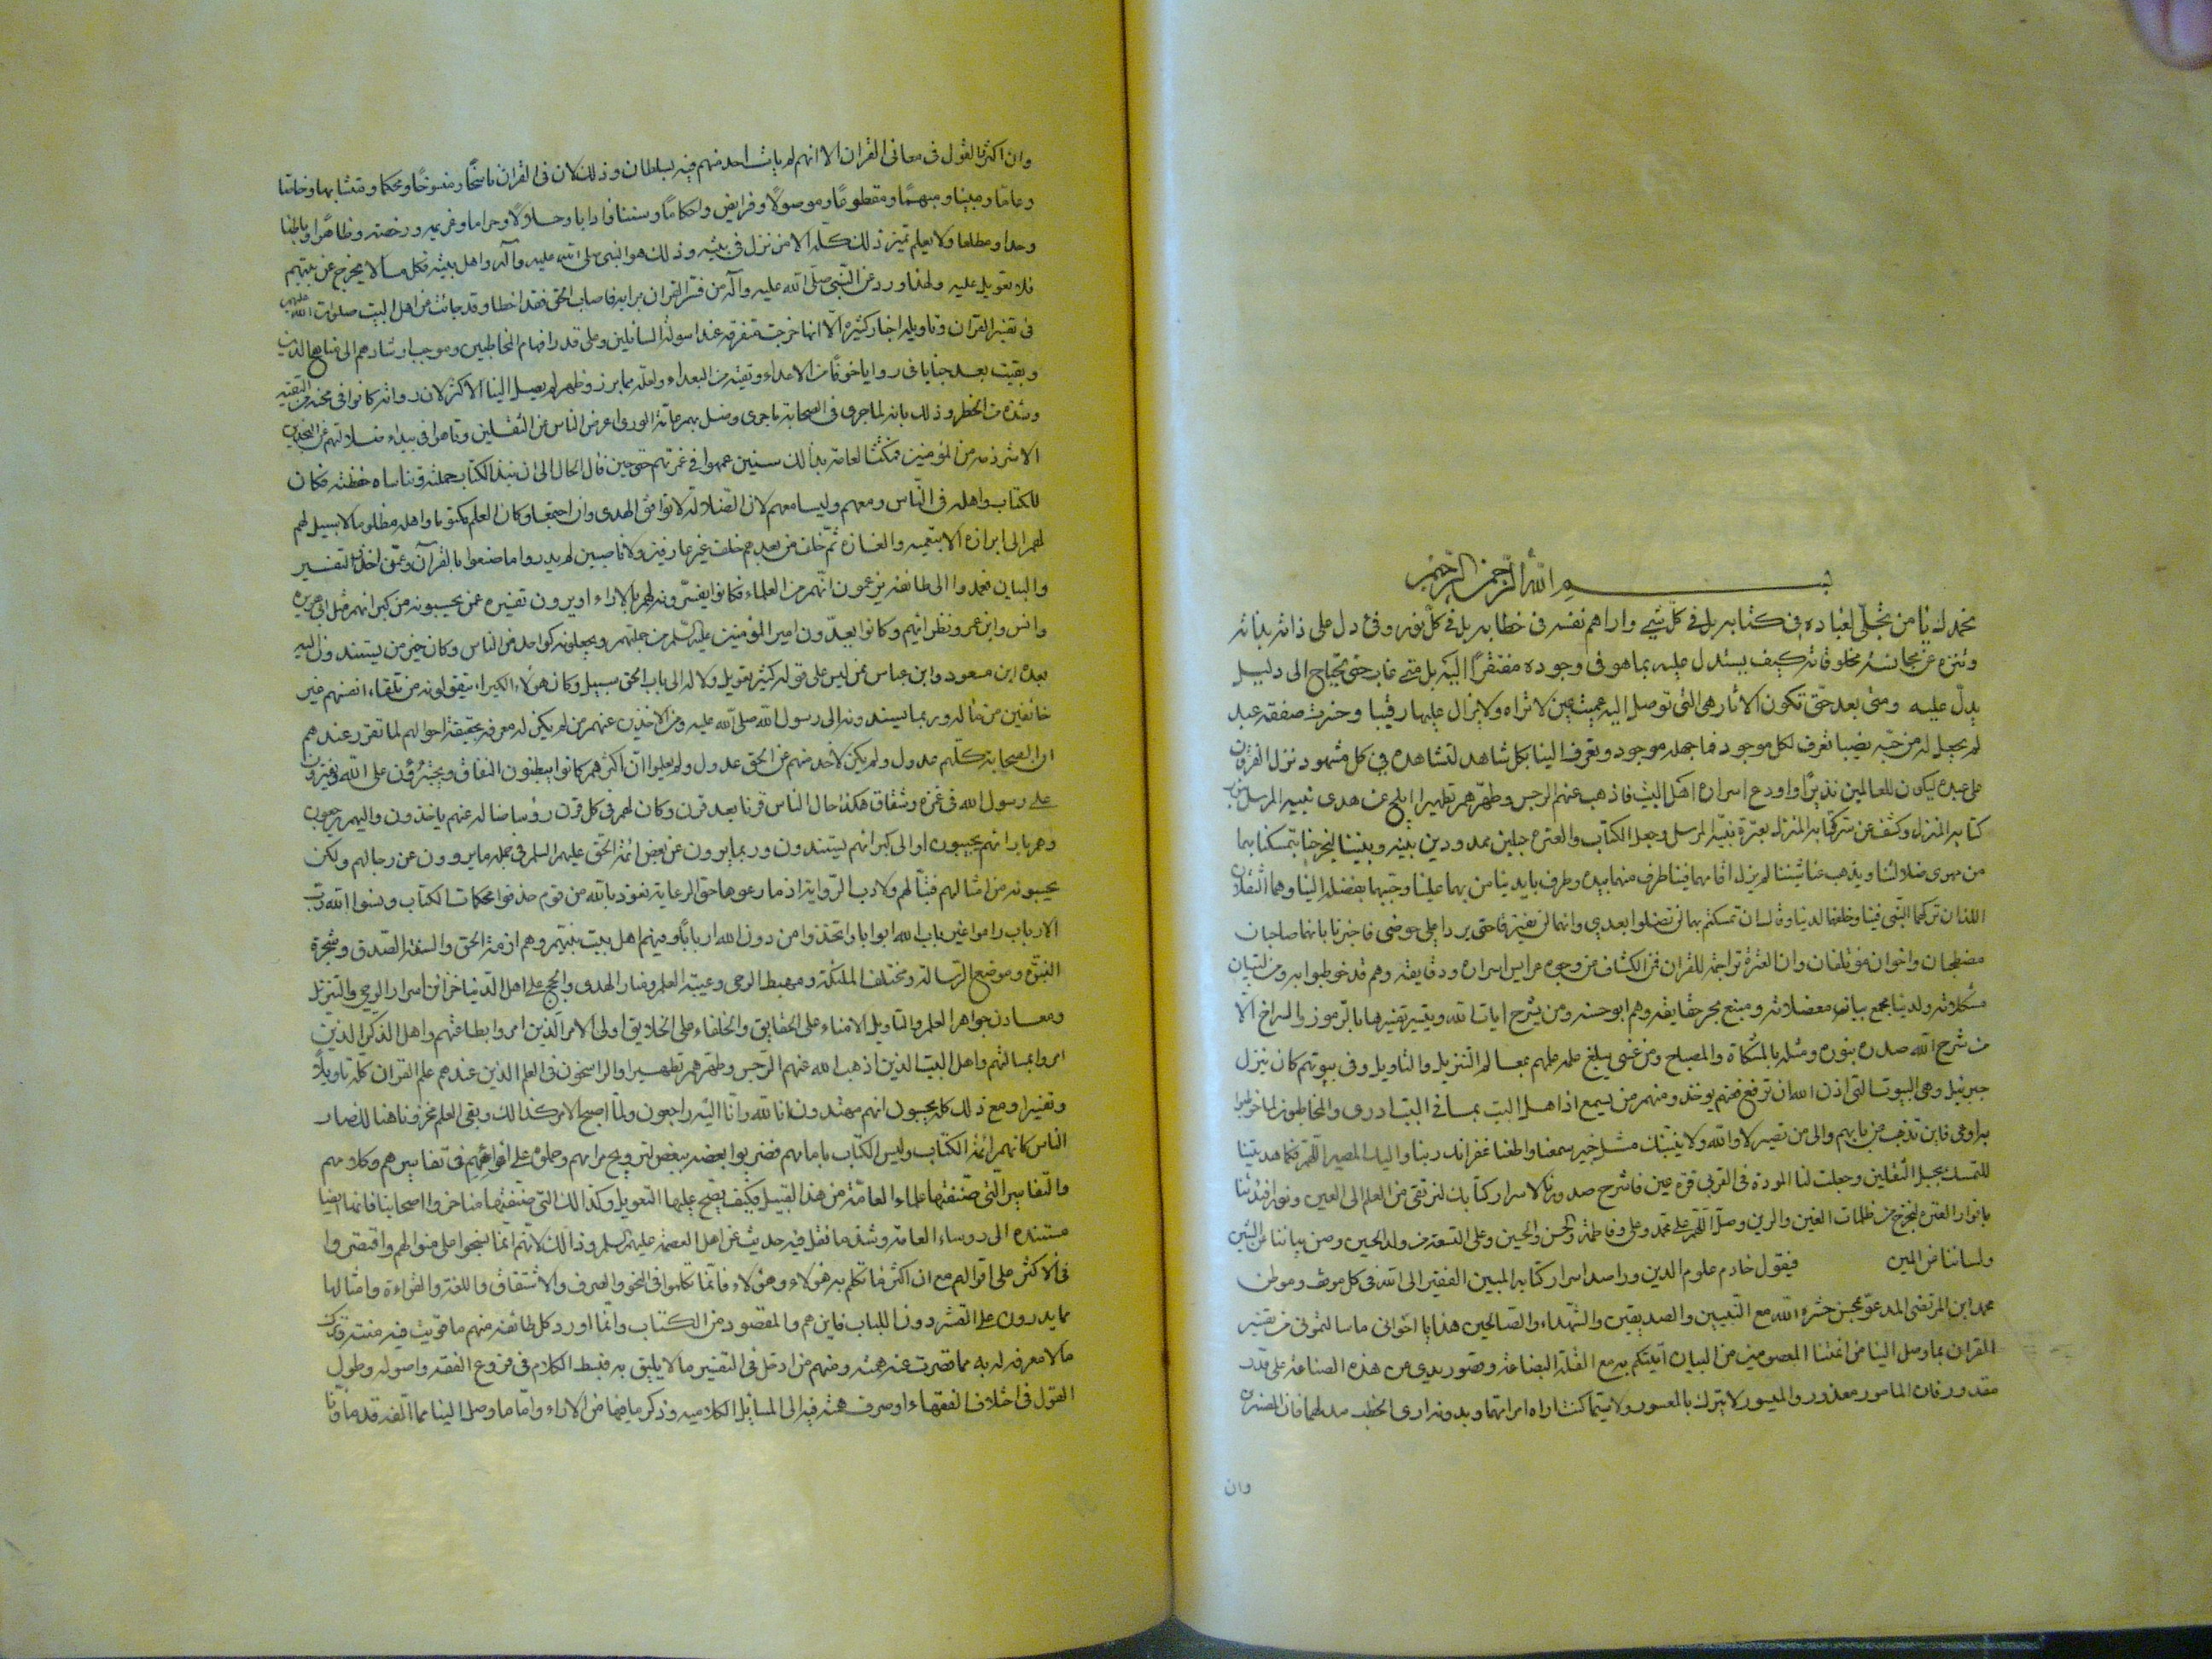 بسم الله الرحمن الرحيم
نحمدك يا من تجلى لعباده في كتابه بل في كل شيء واراهم نفسه في خطابه بل في كل نور وفئ دل على ذاته بذاته
وتنزه عن مجانسة مخلوقاته كيف يستدل عليه بما هو في وجوده مفتقرا اليه بل متى غاب حتى يحتاج الى دليل
يدل عليه ومتى بعد حتى تكون الاثار هي التي توصل اليه عميت عين لا تراه ولا يزال عليها رقيبا وخسرت صفقة عبد
لم يجعل له من حبه نصيبا تعرف لكل موجود فما جهله موجود وتعرف الينا بكل شاهد لنشاهده في كل مشهود نزل الفرقان
على عبده ليكون للعالمين نذيرا واودع اسراره اهل البيت فاذهب عنهم الرجس وطهرهم تطهيرا ابلج عن هدى نبيه المرسل بنور
كتابه المنزل وكشف عن سر كتابه المنزل بعترة نبيه المرسل وجعل الكتاب والعترة حبلين ممدودين بينه وبيننا ليخرجنا بتمسكنا بهما
من مهوى ضلالتنا ويذهب عنا شيننا لم يزل اقامهما فينا طرف منهما بيده وطرف بايدينا من بهما علينا وحببهما بفضله الينا وهما الثقلان
اللذان تركهما النبي فينا وخلفهما لدينا وقال ان تمسكتم بهما لن تضلوا بعدي وانهما لن يفترقا حتى يردا علي حوضي فاخبرنا بانهما صاحبان
مصطحبان واخوان مؤتلفان وان العترة تراجمة للقران فمن الكشاف عن وجوه عرايس اسراره ودقايقه وهم قد خوطبوا به ومن لتبيان
مشكلاته ولديهم مجمع بيان معضلاته ومنبع بحر حقايقه وهم ابو حسنه ومن يشرح ايات الله وييسر تفسيرها بالرموز والصراح الا
من شرح الله صدره بنوره ومثله بالمشكاة والمصباح ومن عسى يبلغ علمه علمهم بمعالم التنزيل والتاويل وفي بيوتهم كان ينزل
جبرئيل وهي البيوت التي اذن الله ان ترفع فمنهم يؤخذ ومنهم من يسمع اذ اهل البيت بما في البيت ادرى والمخاطبون لما خوطبوا
به اوعى فاين تذهب عن بابهم والى من تصير لا والله ولا ينبئك مثل خبير سمعنا واطعنا غفرانك ربنا واليك المصير اللهم فكما هديتنا
للتمسك بحبل الثقلين وجعلت لنا المودة في القربى قرة عين فاشرح صدورنا لاسرار كتابك لنرتقي من العلم الى العين ونور
بانوار العترة لنخرج من ظلمات الغين والرين وصل اللهم على محمد وعلي وفاطمة والحسن والحسين وعلى التسعة من ولد الحسين وصن بياننا عن الشين
ولساننا عن المين فيقول خادم علوم الدين وراصد اسرار كتابه المبين الفقير الى الله في كل موقف وموطن
محمد ابن المرتضى المدعو بمحسن حشره الله مع النبيين والصديقين والشهداء والصالحين هذا يا اخواني ما سالتموني من تفسير
القران بما وصل الينا من ائمتنا المعصومين من البيان اتيتكم به مع القلة البضاعة وقصور يدي عن هذه الصناعة على قدر
مقدور فان المامور معذور والميسور لا يترك بالمعسور ولا سيما كنت اراه امرا مهما وبدونه ارى الخطب مدلهما فان المفسرين
وان
وان اكثروا القول في معاني القران الا انهم لم يات احد منهم فيه بسلطان وذلك لان في القران ناسخا ومنسوخا ومحكما ومتشابها وخاصا
وعاما ومبينا ومبهما ومقطوعا وموصولا وفرايض واحكاما وسننا وادابا وحلالا وحراما وعزيمة ورخصة وظاهرا وباطنا
وحدا ومطلعا ولا يعلم تميز ذلك كله الا من نزل في بيته وذلك هو النبي صلى الله عليه وآله واهل بيته فكل ما لا يخرج عن بيتهم
فلا تعويل عليه ولهذا ورد عن النبي صلى الله عليه وآله من فسر القران برايه فاصاب الحق فقد اخطا وقد جائت من اهل البيت صلوات الله عليهم
في تفسير القران وتاويله اخبار كثيرة الا انها خرجت متفرقة عند اسولة السائلين وعلى قدر افهام المخاطبين وبموجب ارشادهم الى مناهج الدين
وبقيت بعد خبايا في زوايا خوفا من الاعداء وتقية من البعداء ولعله مما برز وظهر لم يصل الينا الاكثر لان رواته كانوا في محنة من التقية
وشدة من الخطر وذلك بانه لما جرى في الصحابة ما جرى وضل بهم عامة الورى اعرض الناس عن الثقلين وتاهوا في بيداء ضلالتهم عن النجدين
الا شرذمة من المؤمنين فمكثت العامة بذلك سنين عمهوا في غمرتهم حتى حين فال الحال الى ان نبذ الكتاب حملته وتناساه حفظته فكان
الكتاب واهله في الناس ومعهم وليسا معهم لان الضلالة لا توافق الهدى وان اجتمعا وكان العلم مكتوما واهله مظلوما لا سبيل لهم
لهم الى ابرازه الا بتعمية والغازه ثم خلف من بعدهم خلف غير عارفين ولا ناصبين لم يدروا ما صنعوا بالقرآن وعمن اخذوا التفسير
والبيان فعمدوا الى طائفة يزعمون انهم من العلماء فكانوا يفسرونه لهم بالاراء او يروون تفسيره عمن يحسبونه من كبرائهم مثل ابي هريرة
وانس وابن عمر ونظرائهم وكانوا يعدون امير المؤمنين عليه السلم من جملتهم ويجعلونه كواحد من الناس وكان خير من يستندون اليه
بعده ابن مسعود وابن عباس ممن ليس على قوله كثير تعويل ولا له الى لباب الحق سبيل وكان هؤلاء الكبراء يتقولونه من تلقاء انفسهم غير
خائفين من ماله وربما يسندونه الى رسول الله صلى الله عليه ومن الاخذين عنهم من لم يكن له معرفة بحقيقة احوالهم لما تقرر عندهم
ان الصحابة كلهم عدول ولم يكن لاحد منهم عن الحق عدول ولم يعلموا ان اكثرهم كانوا يبطنون النفاق ويجترؤن على الله ويفترون
على رسول الله في عزة وشقاق هكذا حال الناس قرنا بعد قرن وكان لهم في كل قرن رؤسا ضالة عنهم ياخذون واليهم يرجعون
وهم بارائهم يجيبون او الى كبرائهم يستندون وربما يروون عن بعض ائمة الحق عليهم السلم في جملة ما يروون عن رجالهم ولكن
يحسبونه من امثالهم فتبا لهم ولادب الرواية اذ ما رعوها حق الرعاية نعوذ بالله من قوم حذفوا محكمات الكتاب ونسوا الله رب
الارباب راموا غير باب الله ابوابا واتخذوا من دون الله اربابا وفيهم اهل بيت نبيهم وهم ازمة الحق والسنة الصدق وشجرة
النبوة وموضع الرسالة ومختلف الملئكة ومهبط الوحي وعيبة العلم ومنار الهدى والحجج على اهل الدنيا خزائن اسرار الوحي والتنزيل
ومعادن جواهر العلم والتاويل الامناء على الحقايق والخلفاء على الخلايق اولي الامر الذين امروا بطاعتهم واهل الذكر الذين
امروا بمسالتهم واهل البيت الذين اذهب الله عنهم الرجس وطهرهم تطهيرا والراسخون في العلم الذين عندهم علم القران كله تاويلا
وتفسيرا ومع ذلك كله يحسبون انهم مهتدون انا لله وانا اليه راجعون ولما اصبح الامر كذلك وبقي العلم مخزونا هنالك صار
الناس كانهم ائمة الكتاب وليس الكتاب بامامهم فضربوا بعضه ببعض لترويج مرامهم وحملوه على اهوائهم في تفاسيرهم وكلامهم
والتفاسير التي صنفها علماء العامة من هذا القبيل فكيف يصح عليها التعويل وكذلك التي صنفها متاخروا اصحابنا فانها ايضا
مستندة الى رؤساء العامة وشذ ما نقل فيه حديث عن اهل العصمة عليهم السلم وذلك لانهم انما نسجوا على منوالهم واقتصروا
في الاكثر على اقوالهم مع ان اكثر ما تكلم به هؤلاء وهؤلاء فانما تكلموا في النحو والصرف والاشتقاق واللغة والقراءة وامثالها
مما يدور على القشر دون اللباب فاين هم والمقصود من الكتاب وانما اورد كل طائفة منهم ما قويت فيه منته وترك
ما لا معرفة له به مما قصرت عنه همته ومنهم من ادخل في التفسير ما لا يليق به فبسط الكلام في فروع الفقه واصوله وطول
القول في اختلاف الفقهاء او صرف همته فيه الى المسائل الكلامية وذكر ما فيها من الاراء واما ما وصل الينا مما الفه قدماؤنا